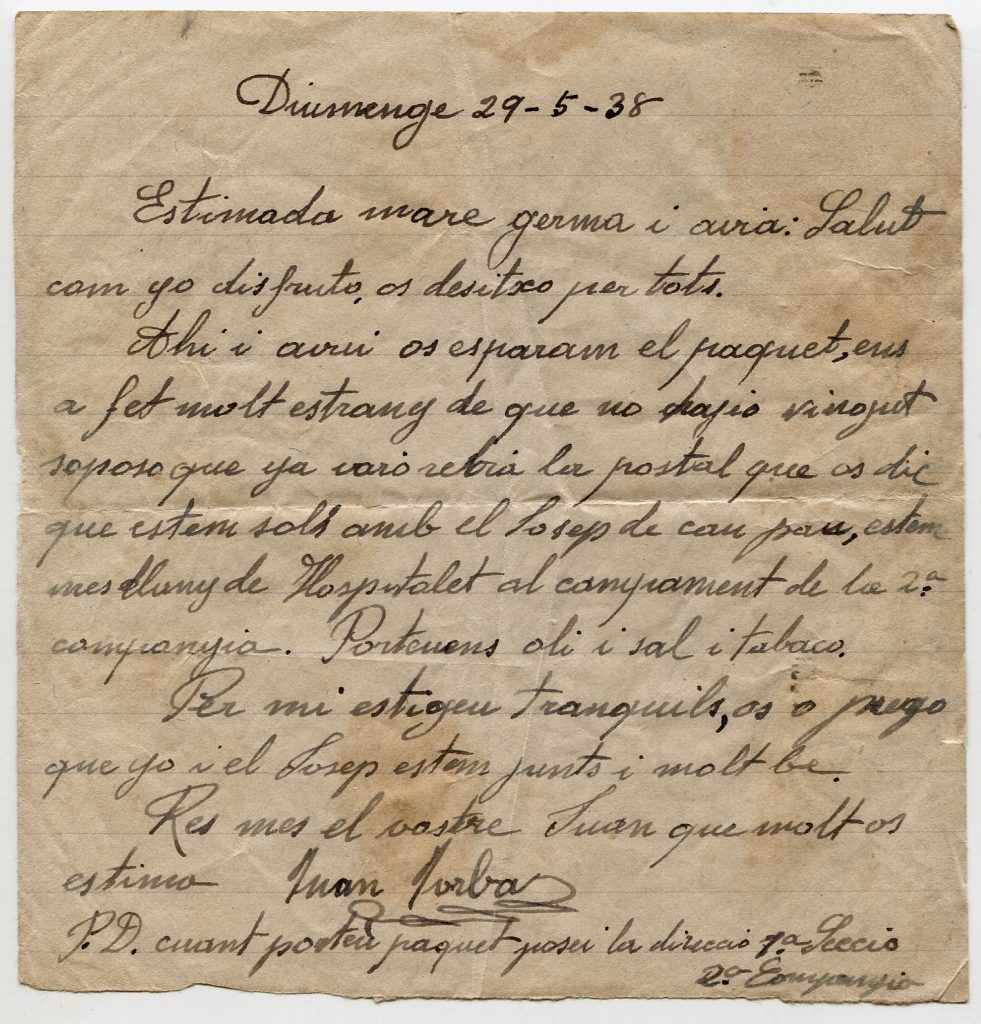 Diumenge 29-5-38
Estimada mare germa i avia: Salut
com yo disfruto, os desitxo per tots.
Ahi i avui os esparam el paquet, ens
a fet molt estrany de que no hagio vingut
soposo que ya varo rebra la postal que os dic
que estem sols amb el Josep de can pau, estem
mes lluny de Hospitalet al campament de la 2ª
companyia. Porteuens oli i sal i tabaco.
Per mi estigeu tranquils, os o prego
que yo i el Josep estem junts i molt be.
Res mes el vostre Juan que molt os
estima Juan Jorba
P.D. cuant porteu paquet posei la direccio 1ª Seccio
2ª Companyia